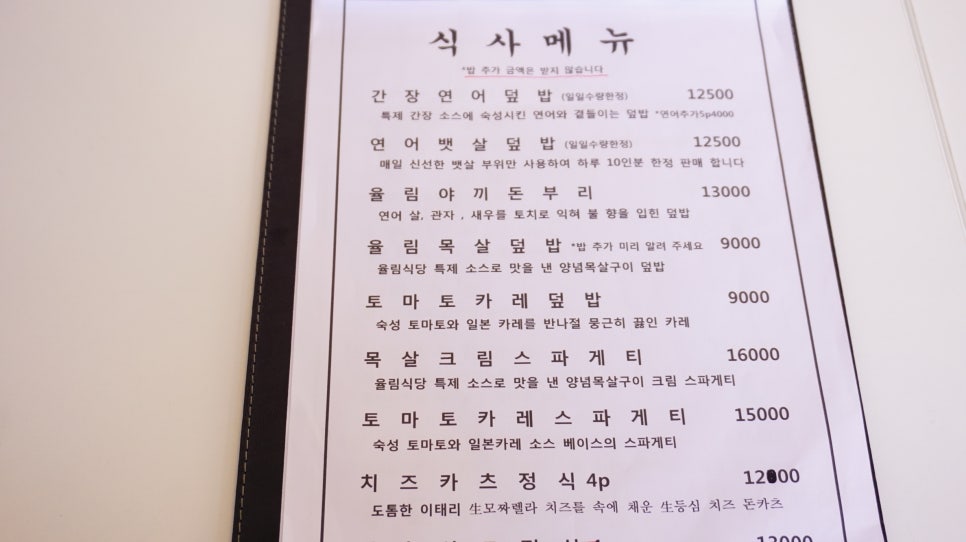 식사메뉴
*밥 추가 금액은 받지 않습니다
간장연어덮밥 (일일수량한정) 12500
특제 간장 소스에 숙성시킨 연어와 곁들이는 덮밥 *연어추가5p4000
연어뱃살덮밥 (일일수량한정) 12500
매일 신선한 뱃살 부위만 사용하여 하루 10인분 한정 판매 합니다
율림야끼돈부리 13000
연어 살, 관자 , 새우를 토치로 익혀 불 향을 입힌 덮밥
율림목살덮밥 *밥 추가 미리 알려 주세요 9000
율림식당 특제 소스로 맛을 낸 양념목살구이 덮밥
토마토카레덮밥 9000
숙성 토마토와 일본 카레를 반나절 뭉근히 끓인 카레
목살크림스파게티 16000
율림식당 특제 소스로 맛을 낸 양념목살구이 크림 스파게티
토마토카레스파게티 15000
숙성 토마토와 일본카레 소스 베이스의 스파게티
치즈카츠정식4p 12000
도톰한 이태리 生모짜렐라 치즈를 속에 채운 生등심 치즈 돈카츠